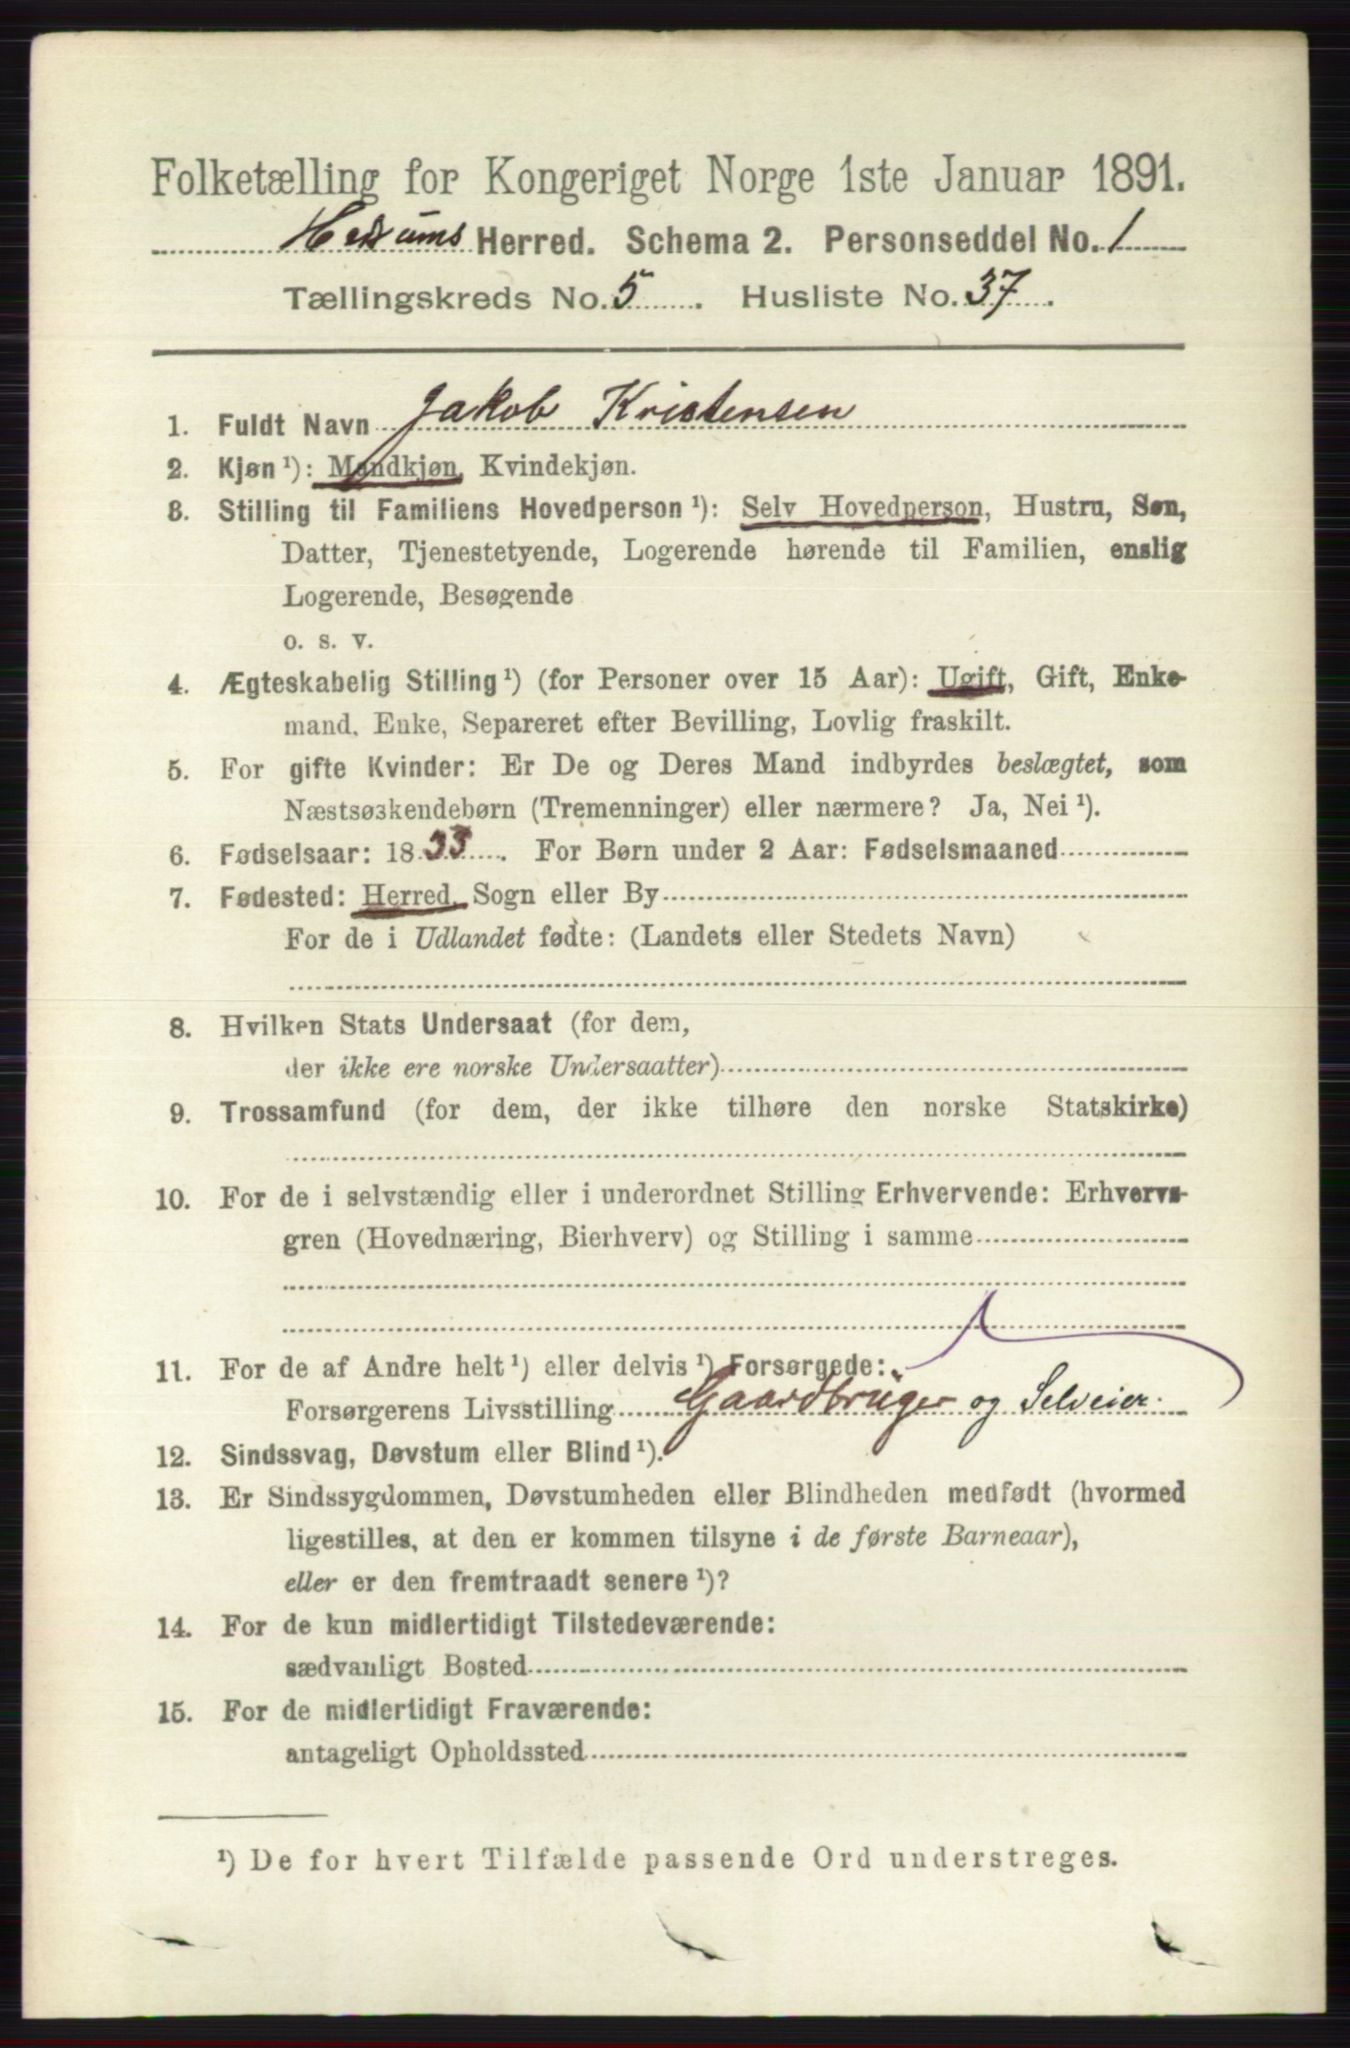 Folketælling for Kongeriget Norge 1ste Januar 1891.
Hedrums Herred. Schema 2. Personseddel No. 1
Tællingskreds No. 5. Husliste No. 37.
1. Fuldt Navn Jakob Kristensen
2. Kjøn ¹): Mandkjøn, Kvindekjøn.
3. Stilling til Familiens Hovedperson ¹): Selv Hovedperson, Hustru, Søn,
Datter, Tjenestetyende, Logerende hørende til Familien, enslig
Logerende, Besøgende
o. s. v.
4. Ægteskabelig Stilling ¹) (for Personer over 15 Aar): Ugift, Gift, Enke-
mand, Enke, Separeret efter Bevilling, Lovlig fraskilt.
5. For gifte Kvinder: Er De og Deres Mand indbyrdes beslægtet, som
Næstsøskendebørn (Tremenninger) eller nærmere? Ja, Nei ¹).
6. Fødselsaar: 1833. For Børn under 2 Aar: Fødselsmaaned
7. Fødested: Herred, Sogn eller By
For de i Udlandet fødte: (Landets eller Stedets Navn)
8. Hvilken Stats Undersaat (for dem,
der ikke ere norske Undersaatter)
9. Trossamfund (for dem, der ikke tilhøre den norske Statskirke)
10. For de i selvstændig eller i underordnet Stilling Erhvervende: Erhvervs-
gren (Hovednæring, Bierhverv) og Stilling i samme
11. For de af Andre helt ¹) eller delvis ¹) Forsørgede:
Forsørgerens Livsstilling Gaardbruger og Selveier.
12. Sindssvag, Døvstum eller Blind ¹).
13. Er Sindssygdommen, Døvstumheden eller Blindheden medfødt (hvormed
ligestilles, at den er kommen tilsyne i de første Barneaar),
eller er den fremtraadt senere ¹)?
14. For de kun midlertidigt Tilstedeværende:
sædvanligt Bosted
15. For de midlertidigt Fraværende:
antageligt Opholdssted
¹) De for hvert Tilfælde passende Ord understreges.